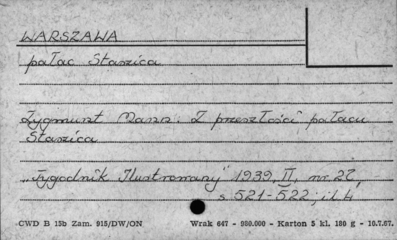 WARSZAWA
pałac Staszica
Zygmunt Mann: Z przeszłości pałacu
Staszica
„Tygodnik Ilustrowany" 1939, II, nr 27,
s. 521-522; il. 4
CWD B 15b Zam. 915/DW/ON Wrak 647 - 980.000 - Karton 5 kl. 180 g - 10.7.67.